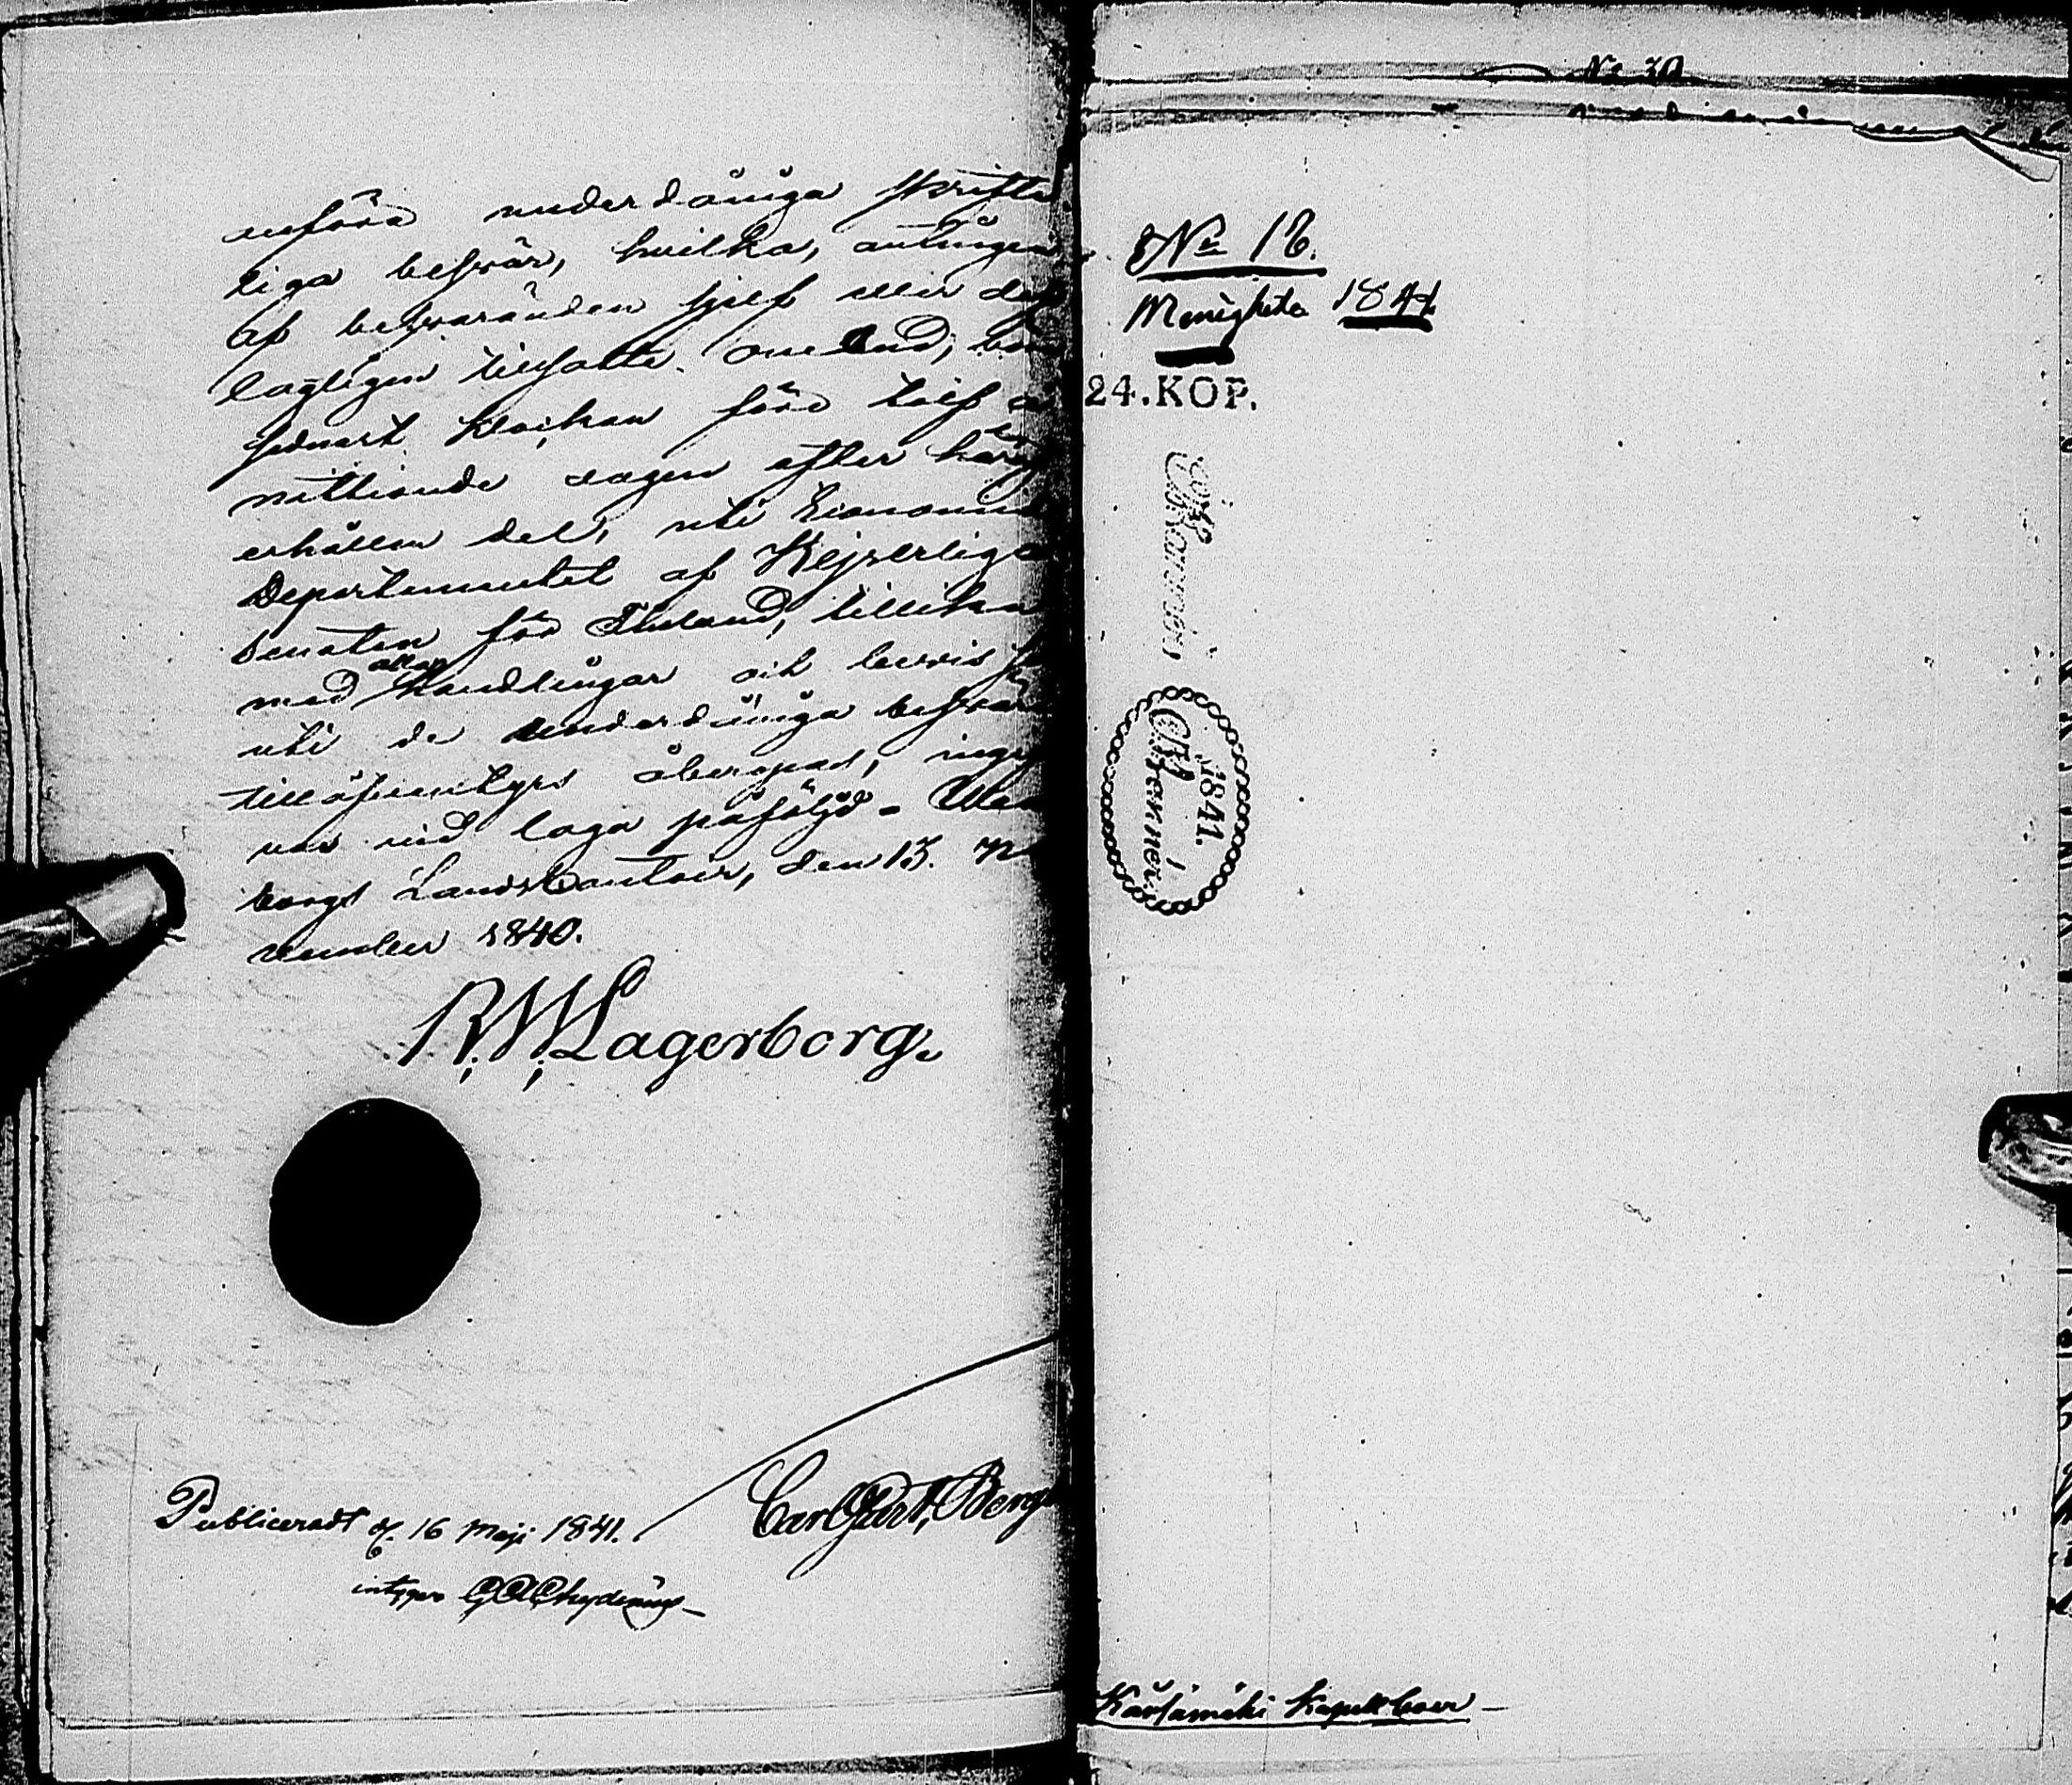 anföra underdåniga skrift-
liga besvär, hvilka, antingen
af besvaranden sjelf eller des
lagligen tillsatte ombud, bör
sednast klockan före tolf å
nittionde dagen efter häraf
erhållen del, uti Economie
Departementet af Kejserliga
Senaten för Finland, tillika
med alla handlingar och bevis
uti de underdåniga besvär
tilläfventyrs åberopas, ingif
vas vid laga påföljd. Ulea
borgs LandsContoir, den 13. No
vember 1840.
R.W. Lagerborg.
Publiceradt d. 16 Maji 1841.
intygar
Carl Gust. Berg
No 30
No 18.
Menighets 1841.
24.KOP.
1841.
Kärsämäki Kapell boer